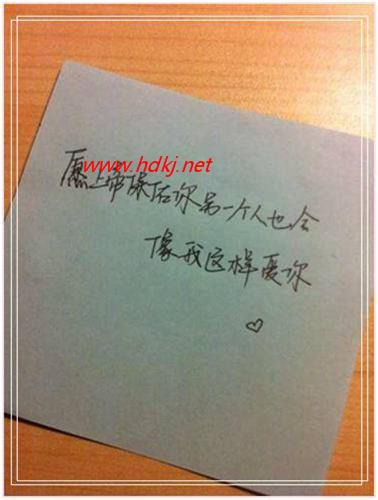 www.hdkj.net
愿上帝保佑你另一个人也会
像我这样爱你